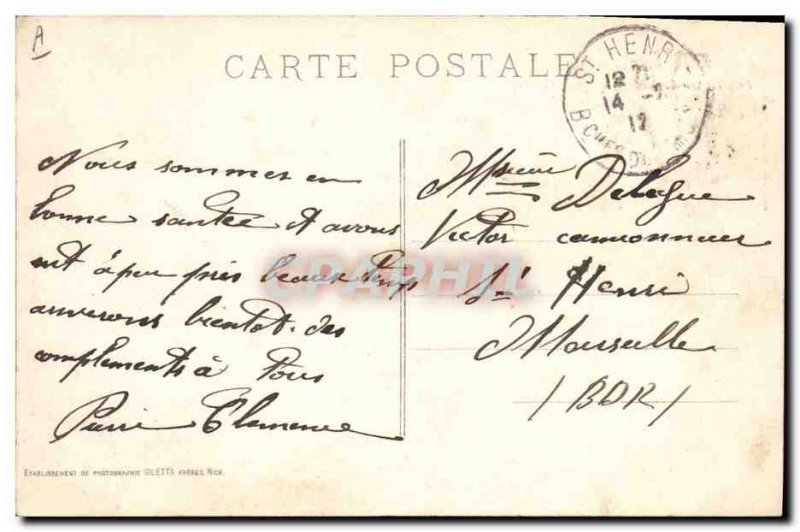 A
CARTE POSTALE
ST HENRI
12
14
12
BCHES DU
Nous sommes en
bonne santée et avons
eut à peu près beaux temps
arriverons bientot. des
complements à Tous
Pierre Clemence
Msieur Delogue
Victor camionneur
St Henri
Marseille
(BDR)
CPAPHIL
ETABLISSEMENT DE PHOTOGRAPHIE GILETTA FRÈRES, NICE.